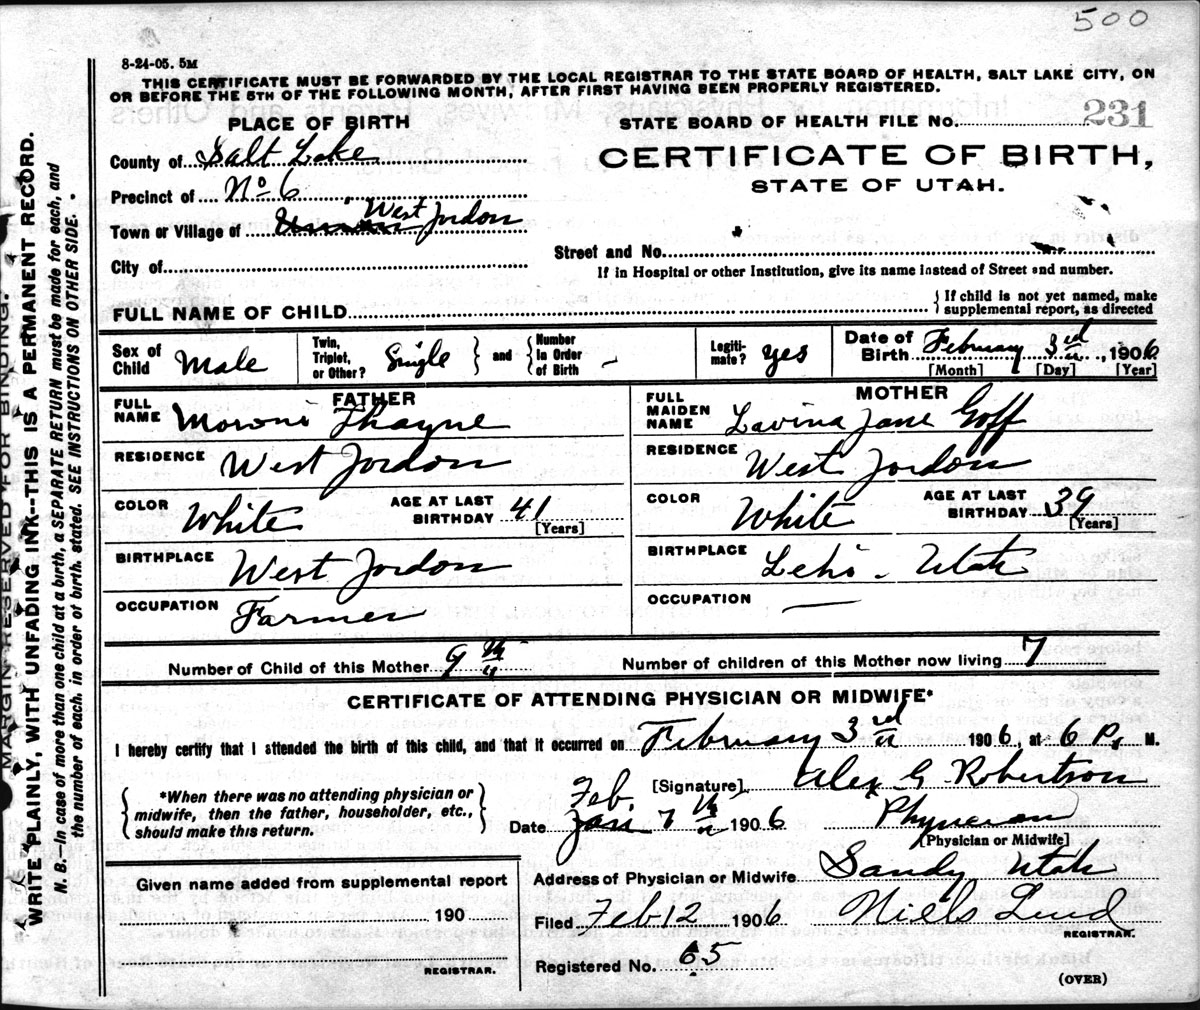 500
8-24-05. 5M
THIS CERTIFICATE MUST BE FORWARDED BY THE LOCAL REGISTRAR TO THE STATE BOARD OF HEALTH, SALT LAKE CITY, ON
OR BEFORE THE 5TH OF THE FOLLOWING MONTH, AFTER FIRST HAVING BEEN PROPERLY REGISTERED.
PLACE OF BIRTH
STATE BOARD OF HEALTH FILE No. 231
County of Salt Lake
CERTIFICATE OF BIRTH,
STATE OF UTAH.
Precinct of No 6
Town or Village of West Jordon
Street and No.
City of
If in Hospital or other Institution, give its name instead of Street and number.
FULL NAME OF CHILD
{ If child is not yet named, make
supplemental report, as directed
Sex of Child Male
Twin, Triplet, or Other? Single } and { Number in Order of Birth -
Legitimate? yes
Date of Birth February 3rd, 1906
[Month] [Day] [Year]
FATHER
FULL NAME Moroni Thayne
RESIDENCE West Jordon
COLOR White AGE AT LAST BIRTHDAY 41 [Years]
BIRTHPLACE West Jordon
OCCUPATION Farmer
MOTHER
FULL MAIDEN NAME Lavina Jane Goff
RESIDENCE West Jordon
COLOR White AGE AT LAST BIRTHDAY 39 [Years]
BIRTHPLACE Lehi - Utah
OCCUPATION —
Number of Child of this Mother 9th
Number of children of this Mother now living 7
CERTIFICATE OF ATTENDING PHYSICIAN OR MIDWIFE*
I hereby certify that I attended the birth of this child, and that it occurred on February 3rd 1906, at 6 P. M.
{ *When there was no attending physician or
midwife, then the father, householder, etc.,
should make this return. }
[Signature] Alex G Robertson
Date Jan Feb. 7th 1906
Physician
[Physician or Midwife]
Address of Physician or Midwife Sandy Utah
Given name added from supplemental report
190
REGISTRAR.
Filed Feb 12 1906 Niels Lind
REGISTRAR.
Registered No. 65
(OVER)
MARGIN RESERVED FOR BINDING.
WRITE PLAINLY, WITH UNFADING INK--THIS IS A PERMANENT RECORD.
N. B.—In case of more than one child at a birth, a SEPARATE RETURN must be made for each, and
the number of each, in order of birth, stated. SEE INSTRUCTIONS ON OTHER SIDE.